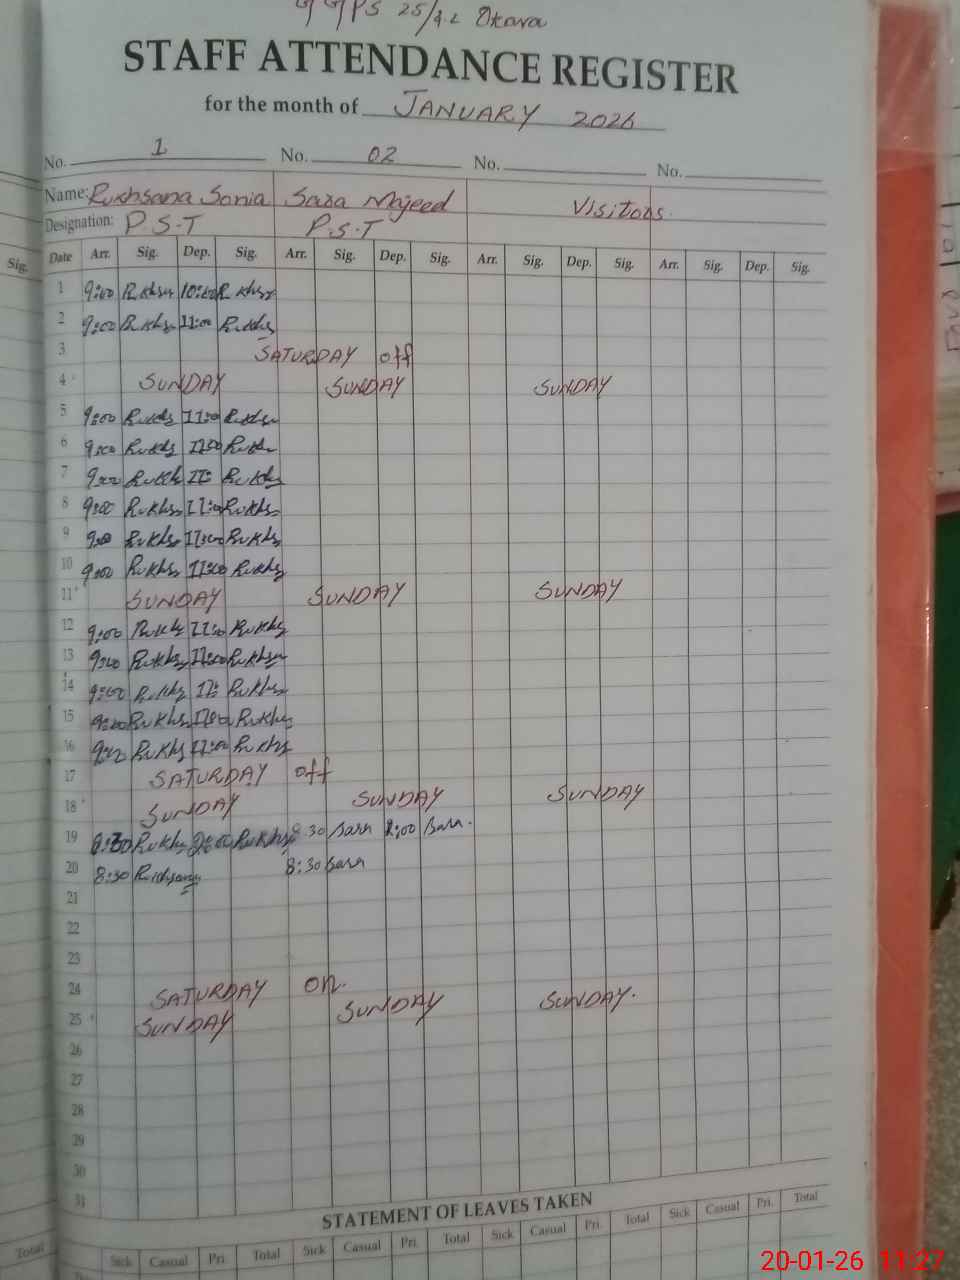 GGPS 25/4.L Okara
STAFF ATTENDANCE REGISTER
for the month of JANUARY 2026
No. 1 No. 02 No. No.
Name: Rukhsana Sonia Sara Majeed Visitors.
Designation: P.S.T P.S.T
Sig. Date Arr. Sig. Dep. Sig. Arr. Sig. Dep. Sig. Arr. Sig. Dep. Sig. Arr. Sig. Dep. Sig.
1 9:00
2 9:00 Rukhs 11:00 Rukhs
3 SATURDAY off
4 SUNDAY SUNDAY SUNDAY
5 9:00 Rukhs 11:00 Rukhs
6 9:00 Rukhs 11:00 Rukhs
7 9:00 Rukhs 11: Rukhs
8 9:00 Rukhs 11:00 Rukhs
9 9:00 Rukhs 11:00 Rukhs
10 9:00 Rukhs 11:00 Rukhs
11 SUNDAY SUNDAY SUNDAY
12 9:00 Rukhs 11:00 Rukhs
13 9:00 Rukhs 11:00 Rukhs
14 9:00 Rukhs 11: Rukhs
15 9:00 Rukhs 11:00 Rukhs
16 9:00 Rukhs 11:00 Rukhs
17 SATURDAY off
18 SUNDAY SUNDAY SUNDAY
19 8:30 Rukhs 2:00 Rukhs 8:30 Sara 2:00 Sara.
20 8:30 8:30 Sara
21
22
23
24 SATURDAY on.
25 SUNDAY SUNDAY SUNDAY.
26
27
28
29
30
31
STATEMENT OF LEAVES TAKEN
Total Sick Casual Pri. Total Sick Casual Pri. Total Sick Casual Pri. Total Sick Casual Pri. Total
20-01-26 11:27